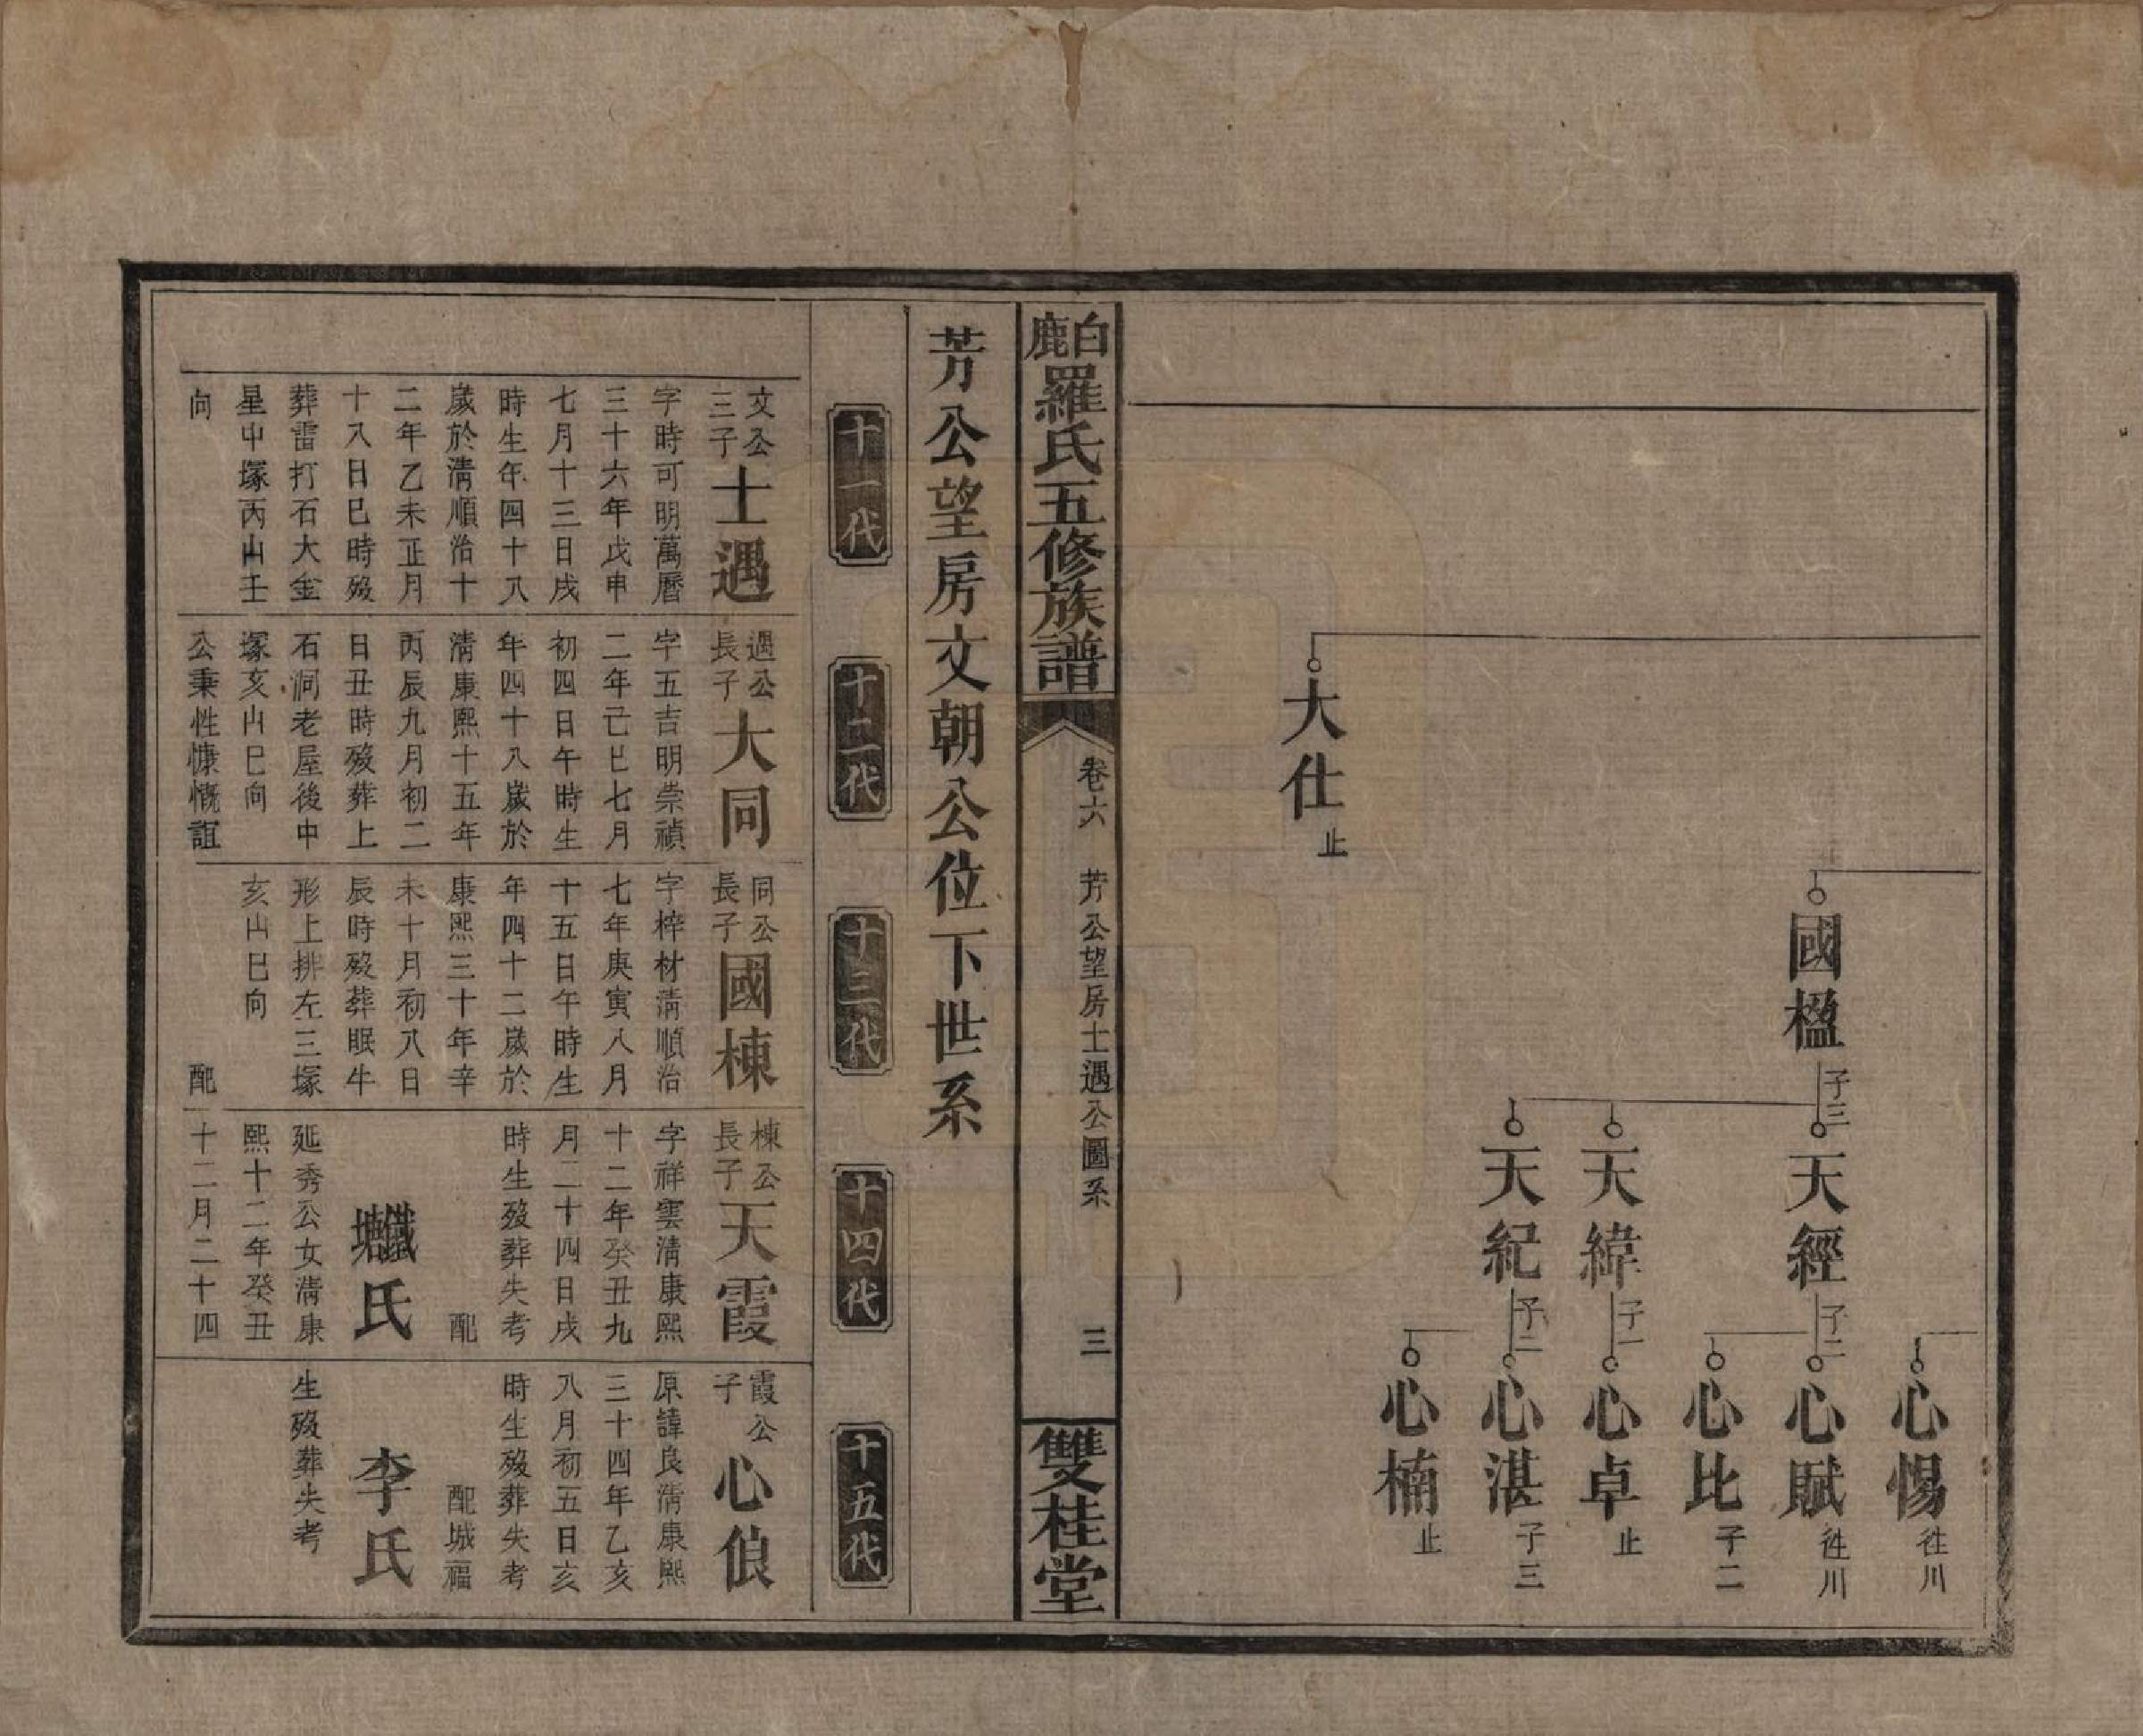 大仕 止
國楹 子三
天經 子二
天緯 子一
天紀 子二
心惕 徃川
心賦 徃川
心比 子二
心卓 止
心湛 子三
心楠 止
白鹿羅氏五修族譜
卷六 芳公望房士遇公圖系
三
雙桂堂
芳公望房文朝公位下世系
十一代
十二代
十三代
十四代
十五代
文公
三子
士遇
字時可明萬曆
三十六年戊申
七月十三日戌
時生年四十八
歲於清順治十
二年乙未正月
十八日巳時歿
葬雷打石大金
星中塚丙山壬
向
遇公
長子
大同
字五吉明崇禎
二年己巳七月
初四日午時生
年四十八歲於
清康熙十五年
丙辰九月初二
日丑時歿葬上
石洞老屋後中
塚亥山巳向
公秉性慷慨誼
同公
長子
國棟
字梓材清順治
七年庚寅八月
十五日午時生
年四十二歲於
康熙三十年辛
未十月初八日
辰時歿葬眠牛
形上排左三塚
亥山巳向
配
棟公
長子
天霞
字祥雲清康熙
十二年癸丑九
月二十四日戌
時生歿葬失考
配
氏
延秀公女清康
熙十二年癸丑
十二月二十四
霞公
子
心俍
原諱良清康熙
三十四年乙亥
八月初五日亥
時生歿葬失考
配城福
李氏
生歿葬失考